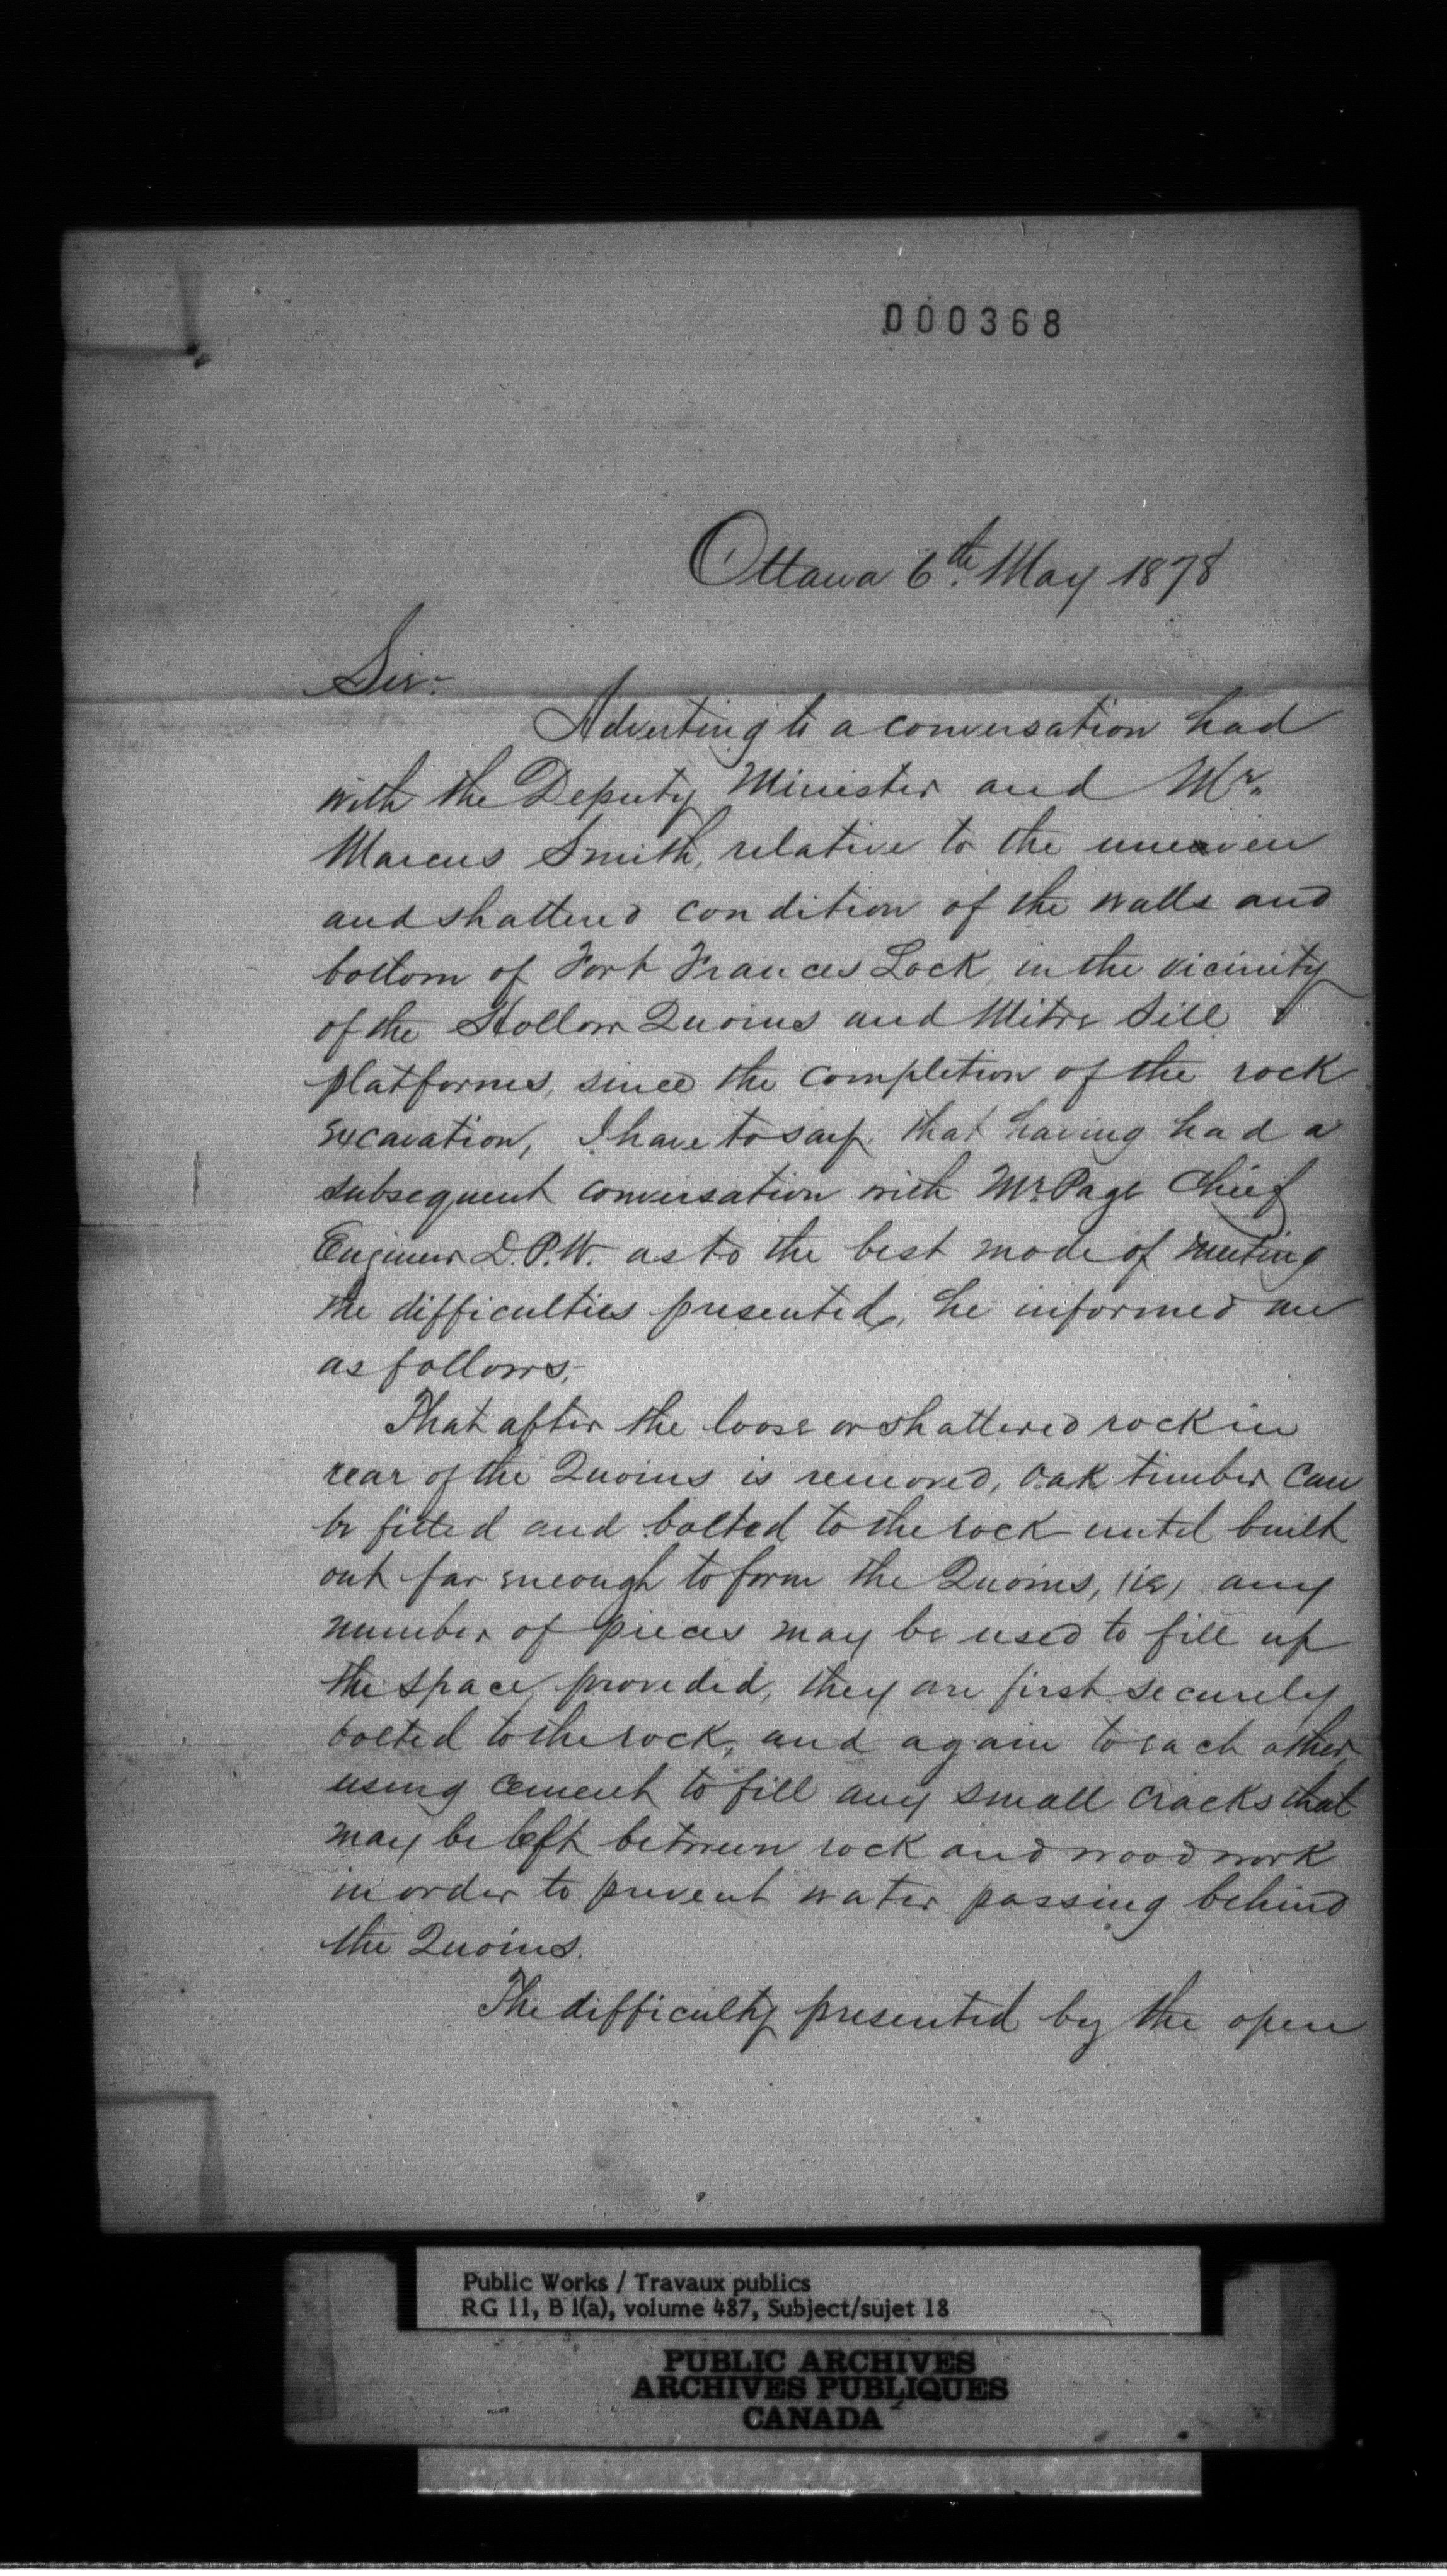 000368
Ottawa 6th. May 1878
Sir:-
Adverting to a conversation had
with the Deputy Minister and Mr.
Marcus Smith, relative to the uneaven
and shattered condition of the walls and
bottom of Fort Frances Lock, in the vicinity
of the Hollow Quoins and Mitre Sill
platforms, since the completion of the rock
excavation, I have to say that having had a
subsequent conversation with Mr. Page Chief
Engineer D.P.W. as to the best mode of meeting
the difficulties presented, he informed me
as follows;-
That after the loose or shattered rock in
rear of the Quoins is removed, oak timber can
be fitted and bolted to the rock until built
out far eneough to form the Quoins, (ie) any
number of pieces may be used to fill up
the space, provided, they are first securely
bolted to the rock, and again to each other,
using cement to fill any small cracks that
may be left between rock and wood work
in order to prevent water passing behind
the Quoins.
The difficulty presented by the open
Public Works / Travaux publics
RG 11, B 1(a), volume 487, Subject/sujet 18
PUBLIC ARCHIVES
ARCHIVES PUBLIQUES
CANADA